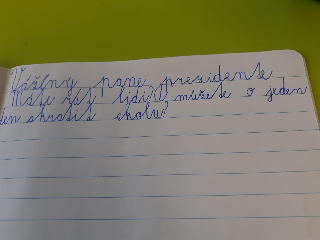 Vážený pane prezidente
Máte rád lidi, můžete o jeden
den zkrátit školu?